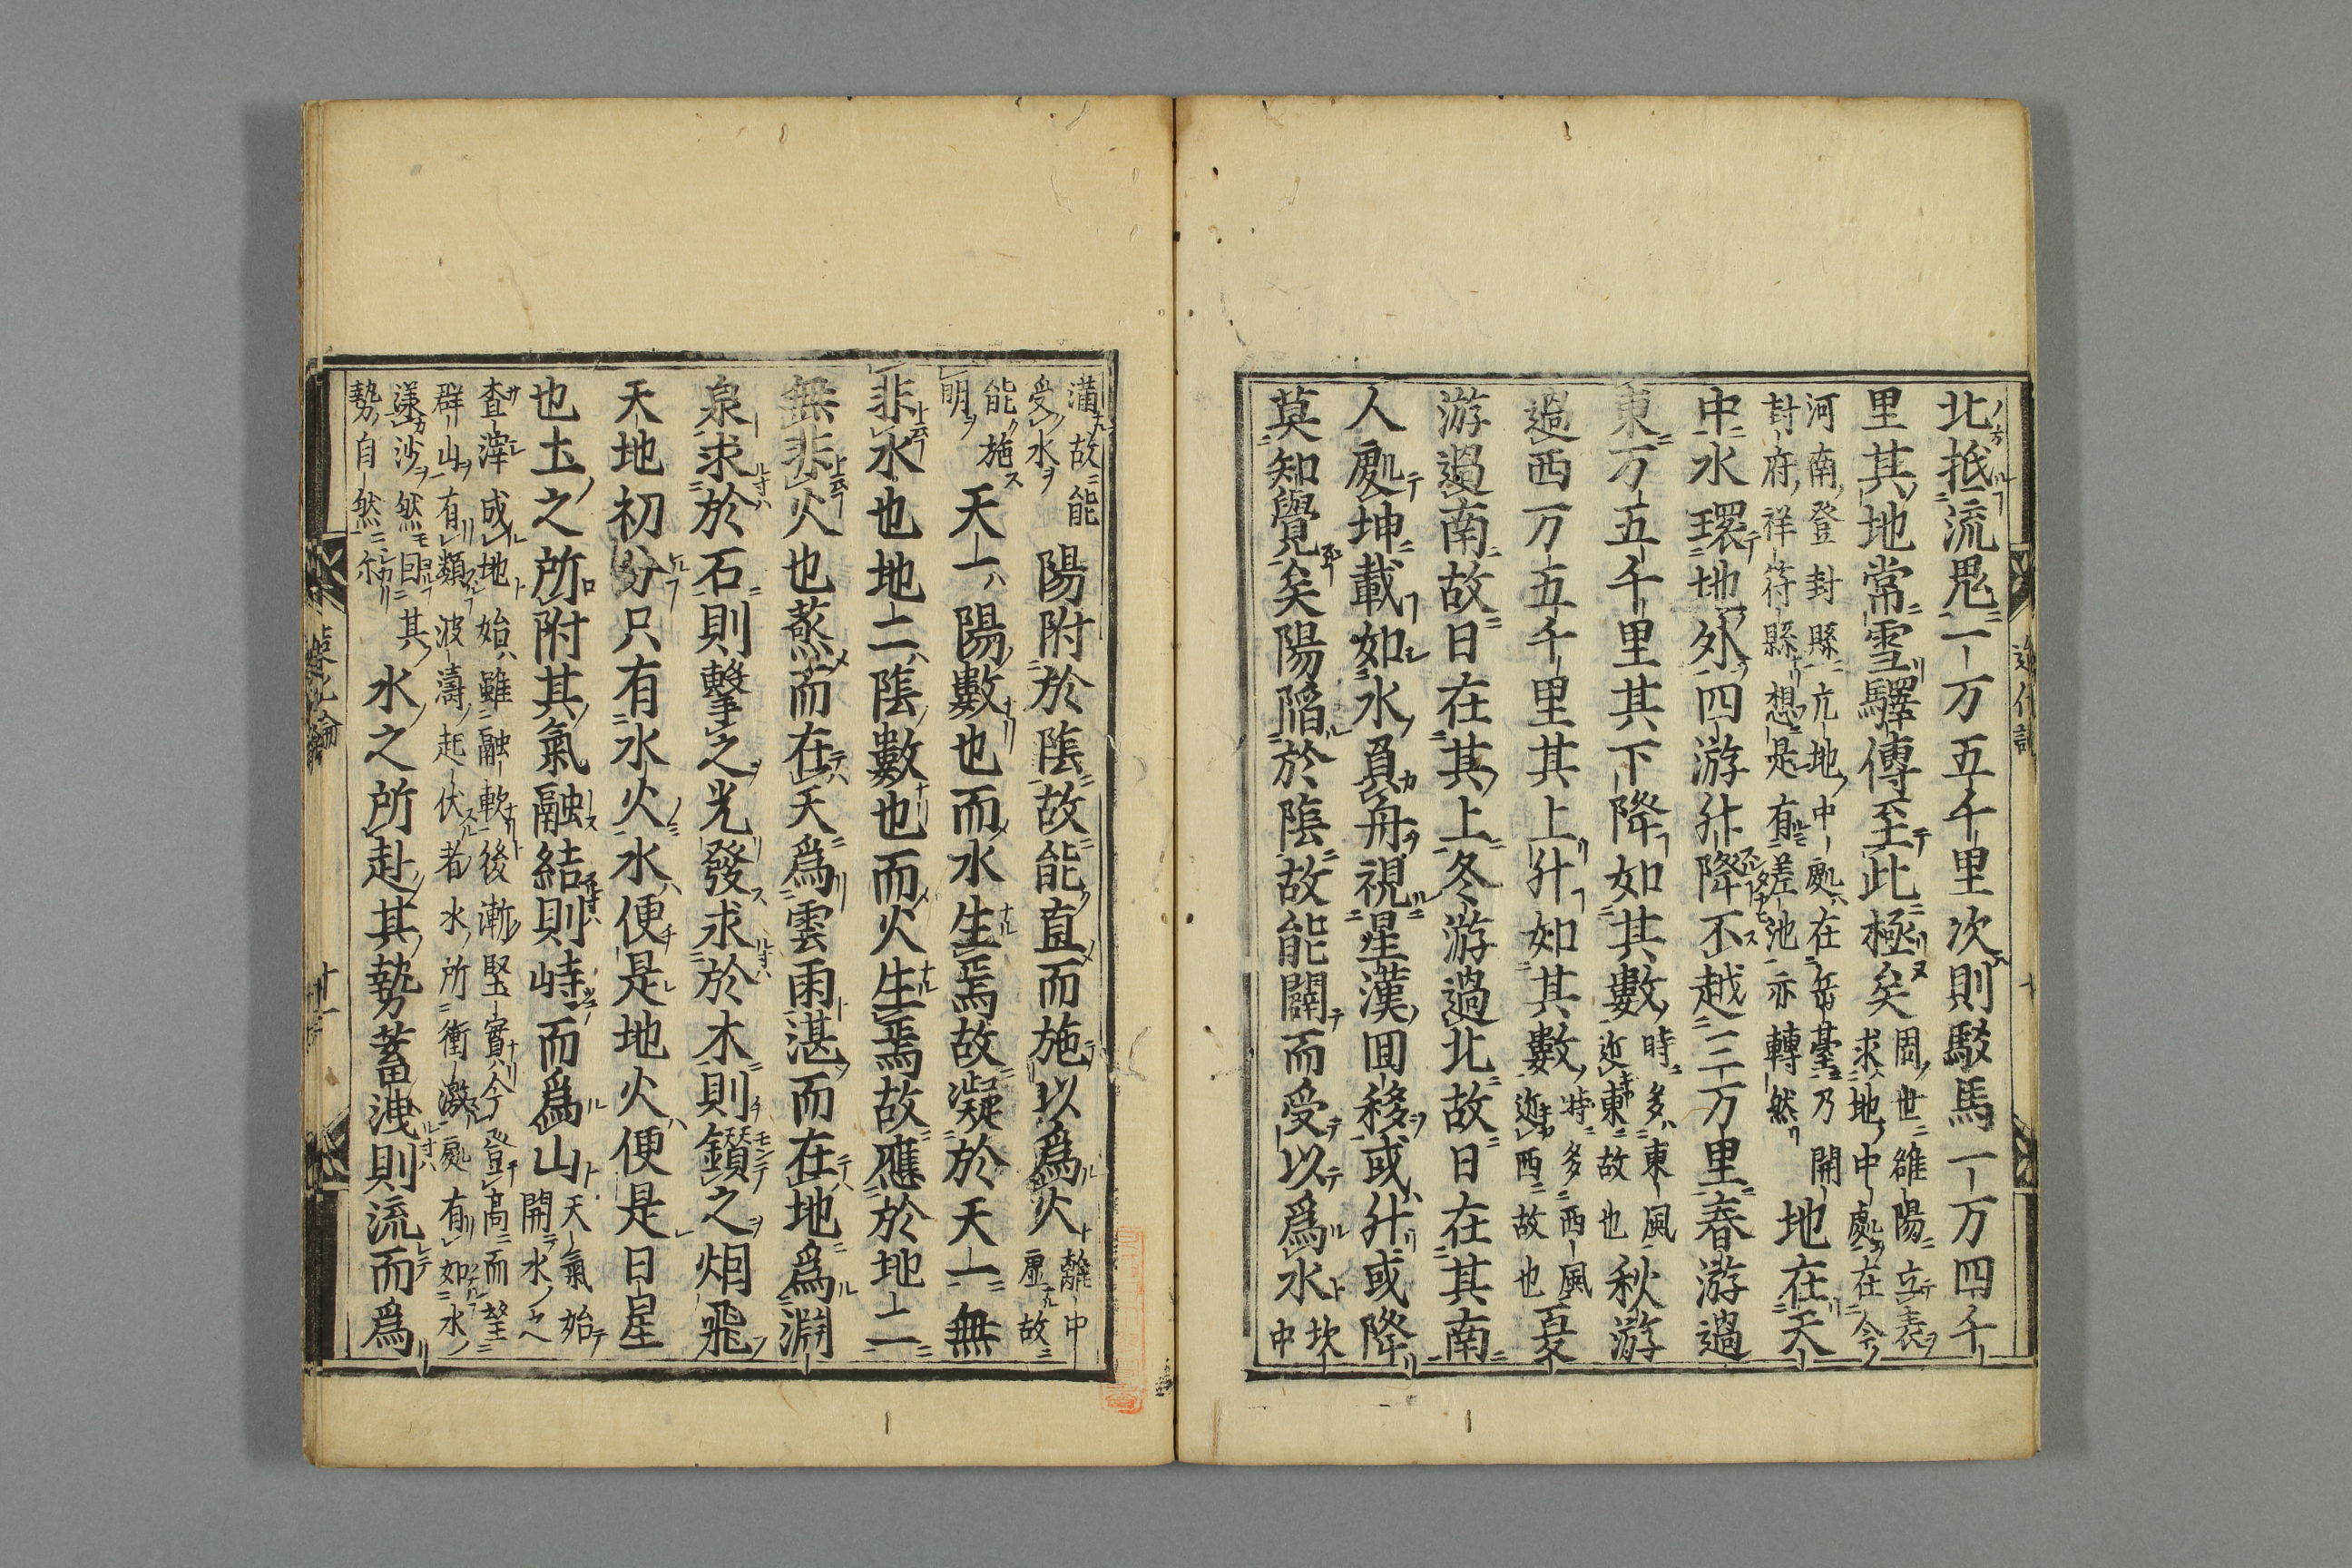 北抵流鬼一万五千里次則駁馬一万四千
里其地常雪驛傳至此極矣
周世雒陽立表
求地中處在今
河南登封縣亢地中處在岳臺乃開
封府祥符縣想是有差池亦轉然
地在天
中水環地外四游升降不越三万里春游過
東万五千里其下降如其數
時多東風
近東故也
秋游
過西万五千里其上升如其數
時多西風
近西故也
夏
游過南故日在其上冬游過北故日在其南
人處坤載如水負舟視星漢囬移或升或降
莫知覺矣陽陷於陰故能闢而受以爲水
坎
中
滿故能
受水
陽附於陰故能直而施以爲火
離中
虛故
能施
明
天一陽數也而水生焉故凝於天一無
非水也地二陰數也而火生焉故應於地二
無非火也蒸而在天爲雲雨湛而在地爲淵
泉求於石則擊之光發求於木則鑽之焰飛
天地初分只有水火水便是地火便是日星
也土之所附其氣融結則峙而爲山
天氣始
開水之
査滓成地始雖融軟後漸堅實今登高而望
群山有類波濤起伏者水所衝激處有如水
漾沙然曰其
勢自然尔
水之所赴其勢蓄洩則流而爲